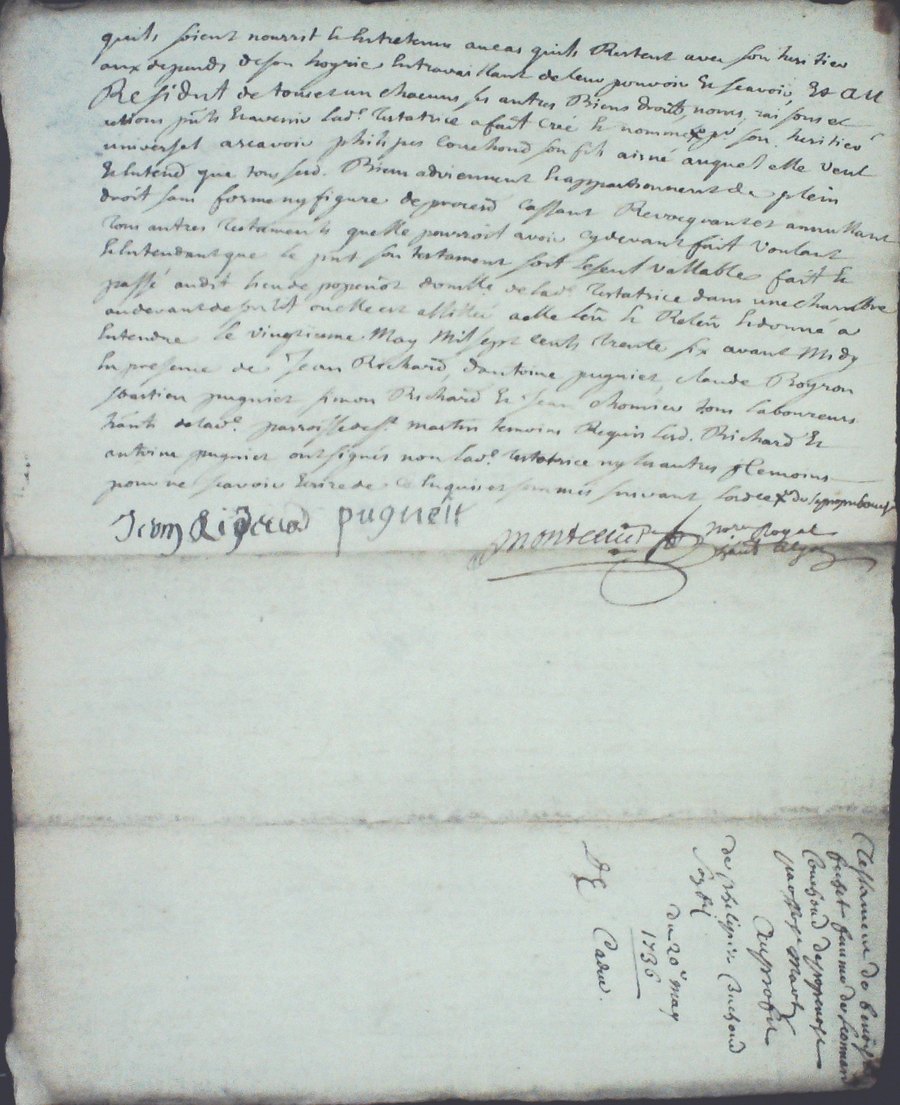 quils soient nourrit & Entretenus aucas quils Restent avec son heritier
aux depends de son hoyrie Entravaillant de leur pouvoir & scavoir, Et au
Residut de tous et un chacuns ses autres Biens droits, noms, raisons et
actions pnts & avenir lad.e testatrice a fait creé & nommé pr son heritier
universel ascavoir philipes Couchoud son fils aisné auquel elle veut
& Entend que tous sesd. Biens adviennent & appartiennent de plein
droit sans forme ny figure de procend Cassant Revocquant et annullant
tous autres testaments quelle pourroit avoir cydevant fait voulant
& Entendant que le pnt son testament soit le seul vallable fait &
passé audit lieu de popenot domille de lad.e testatrice dans une chambre
au devant de son lit ou elle est allittée a elle leu & Releu & donné a
Entendre le vingtieme May Mil sept cents trente six avant Midy
En presence de Jean Richard, dantoine pugniet, claude Royron
pugniet simon Richard & Jean chomier tous laboureurs
hants de lad.e parroisse de St martin temoins Requis lesd. Richard &
antoine pugniet ont signés non lad.e testatrice ny les autres temoins
pour ne scavoir Ecrire de ce Enquis et sommés suivant
Jean Richard pugneit
nore Royal
Testament de
femme de
Couchoud de popenot
paroisse St Martin
Au profit
de philippe Couchoud
son fils
du 20e may
1736